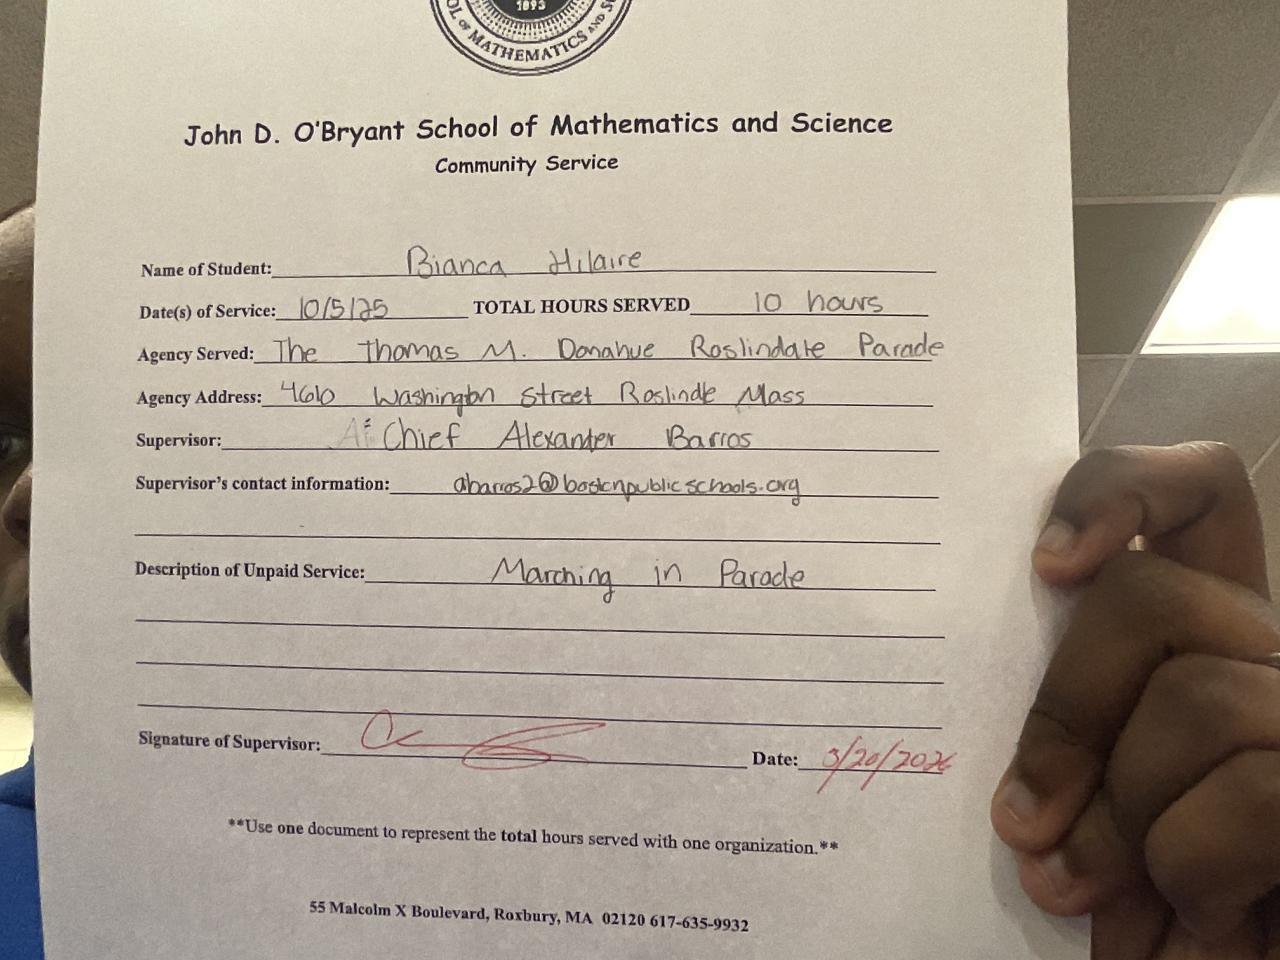 1893
OL OF MATHEMATICS AND SC
John D. O'Bryant School of Mathematics and Science
Community Service
Name of Student: Bianca Hilaire
Date(s) of Service: 10/5/25 TOTAL HOURS SERVED 10 hours
Agency Served: The Thomas M. Donahue Roslindale Parade
Agency Address: 4610 Washington Street Roslindle Mass
Supervisor: Chief Alexander Barros
Supervisor's contact information: abarros2@bostonpublicschools.org
Description of Unpaid Service: Marching in Parade
Signature of Supervisor: Date: 3/20/2026
**Use one document to represent the total hours served with one organization.**
55 Malcolm X Boulevard, Roxbury, MA 02120 617-635-9932